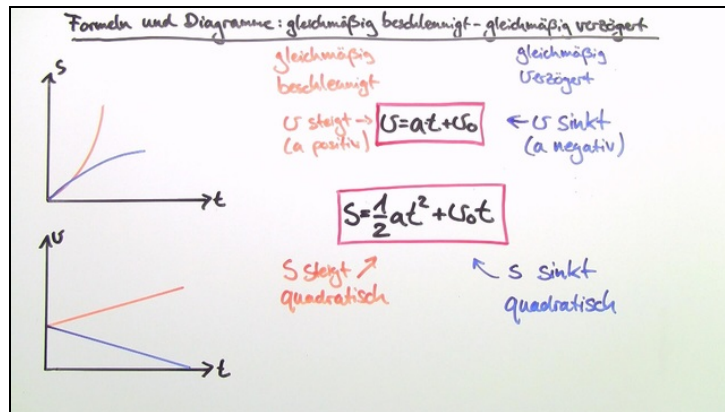 Formeln und Diagramme: gleichmäßig beschleunigt - gleichmäßig verzögert
gleichmäßig
beschleunigt
gleichmäßig
verzögert
s
t
v steigt →
(a positiv)
v=a·t+v₀
← v sinkt
(a negativ)
s=½at²+v₀t
s steigt ↗
quadratisch
↖ s sinkt
quadratisch
v
t